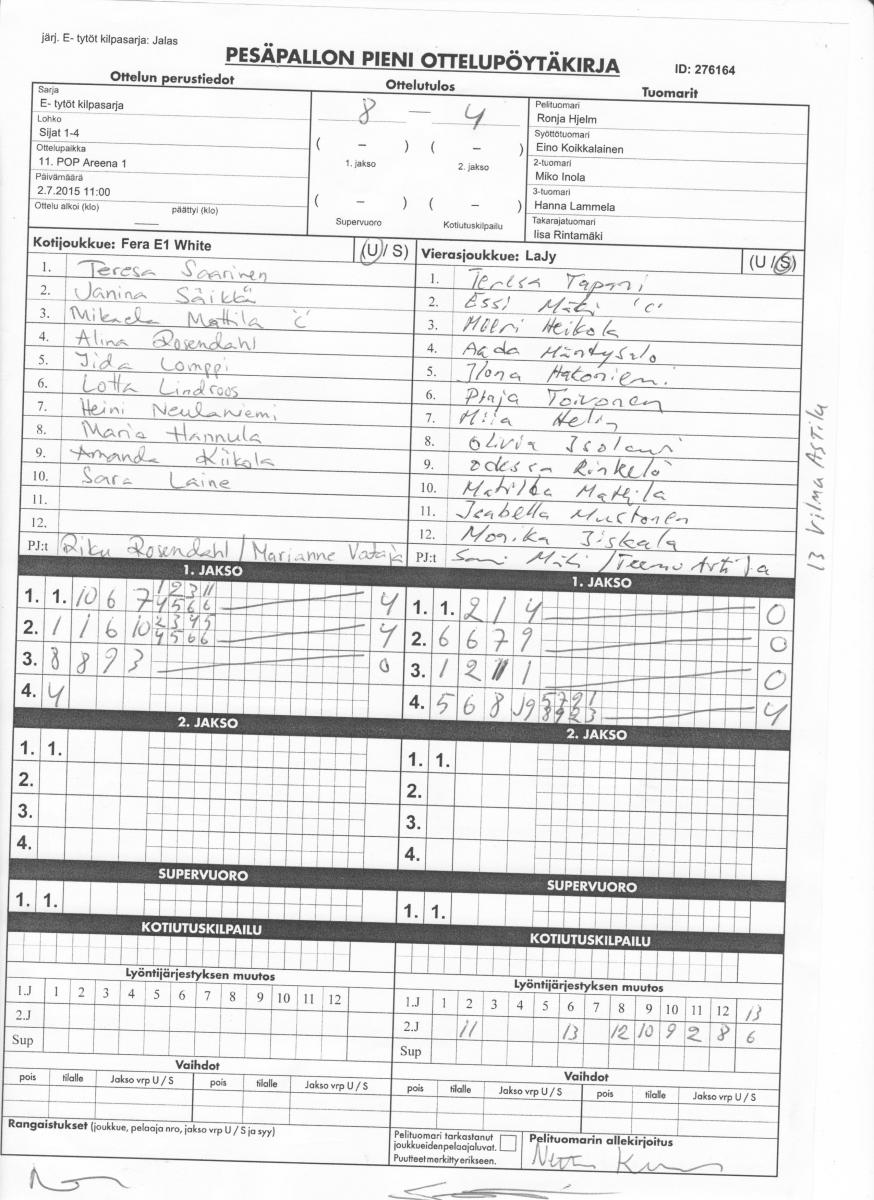 järj. E- tytöt kilpasarja: Jalas
PESÄPALLON PIENI OTTELUPÖYTÄKIRJA
ID: 276164
Ottelun perustiedot
Ottelutulos
Tuomarit
Sarja
E- tytöt kilpasarja
Lohko
Sijat 1-4
Ottelupaikka
11. POP Areena 1
Päivämäärä
2.7.2015 11:00
Ottelu alkoi (klo) päättyi (klo)
8 — 4
( – ) ( – )
1. jakso 2. jakso
( – ) ( – )
Supervuoro Kotiutuskilpailu
Pelituomari
Ronja Hjelm
Syöttötuomari
Eino Koikkalainen
2-tuomari
Miko Inola
3-tuomari
Hanna Lammela
Takarajatuomari
Iisa Rintamäki
Kotijoukkue: Fera E1 White (U / S)
1. Teresa Saarinen
2. Janina Säikkä
3. Mikaela Mattila 'C'
4. Alina Rosendahl
5. Iida Lomppi
6. Lotta Lindroos
7. Heini Neulaniemi
8. Maria Hannula
9. Amanda Kiikola
10. Sara Laine
11.
12.
PJ:t Riku Rosendahl / Marianne Vataja
Vierasjoukkue: LaJy (U / S)
1. Teresa Tapani
2. Essi Mäki 'C'
3. Meeri Heikola
4. Aada Mäntysalo
5. Ilona Hakoniemi
6. Pinja Toivonen
7. Miia Helin
8. Olivia Isolauri
9. Odessa Rinkelö
10. Matilda Mattila
11. Isabella Mustonen
12. Monika Iiskala
PJ:t Sami Mäki / Teemu
13 Vilma Astilu
1. JAKSO
1. 1. 10 6 7 1 2 3 11 4
4 5 6 6
2. 1 1 6 10 2 3 4 5 4
4 5 6 6
3. 8 8 9 3 0
4. 4
1. JAKSO
1. 1. 2 1 4 0
2. 6 6 7 9 0
3. 1 2 1 0
4. 5 6 8 5 7 9 1 4
8 9 2 3
2. JAKSO
1. 1.
2.
3.
4.
2. JAKSO
1. 1.
2.
3.
4.
SUPERVUORO
1. 1.
SUPERVUORO
1. 1.
KOTIUTUSKILPAILU
KOTIUTUSKILPAILU
Lyöntijärjestyksen muutos
1.J 1 2 3 4 5 6 7 8 9 10 11 12
2.J
Sup
Lyöntijärjestyksen muutos
1.J 1 2 3 4 5 6 7 8 9 10 11 12 13
2.J 11 13 12 10 9 2 8 6
Sup
Vaihdot
pois tilalle Jakso vrp U / S pois tilalle Jakso vrp U / S
Vaihdot
pois tilalle Jakso vrp U / S pois tilalle Jakso vrp U / S
Rangaistukset (joukkue, pelaaja nro, jakso vrp U / S ja syy)
Pelituomari tarkastanut
joukkueiden pelaajaluvat.
Puutteet merkitty erikseen.
Pelituomarin allekirjoitus